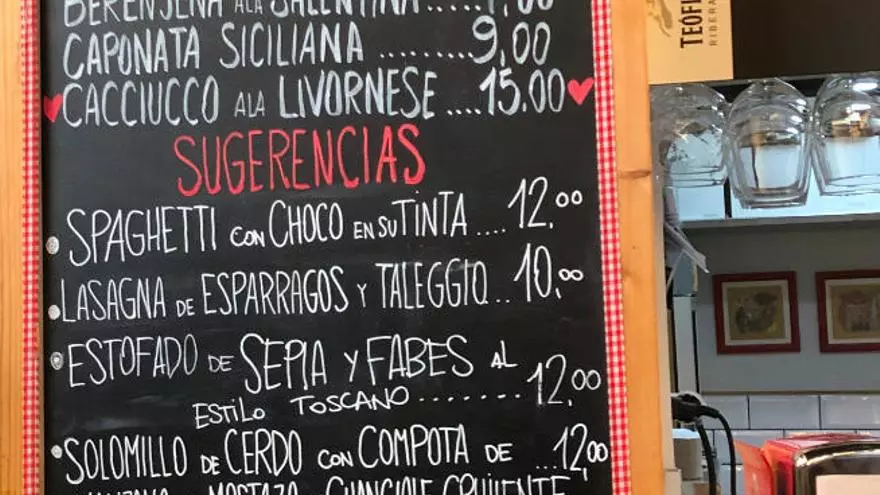 BERENJENA ALA SALENTINA.....9,00
CAPONATA SICILIANA ........9,00
CACCIUCCO ALA LIVORNESE ....15.00
SUGERENCIAS
SPAGHETTI CON CHOCO EN SU TINTA .... 12,00
LASAGNA DE ESPARRAGOS Y TALEGGIO... 10,00
ESTOFADO DE SEPIA Y FABES AL
ESTILO TOSCANO ....... 12,00
SOLOMILLO DE CERDO CON COMPOTA DE ...12,00
MANZANA MOSTAZA GUANCIALE CRUJIENTE
TEÓFI
RIBERA